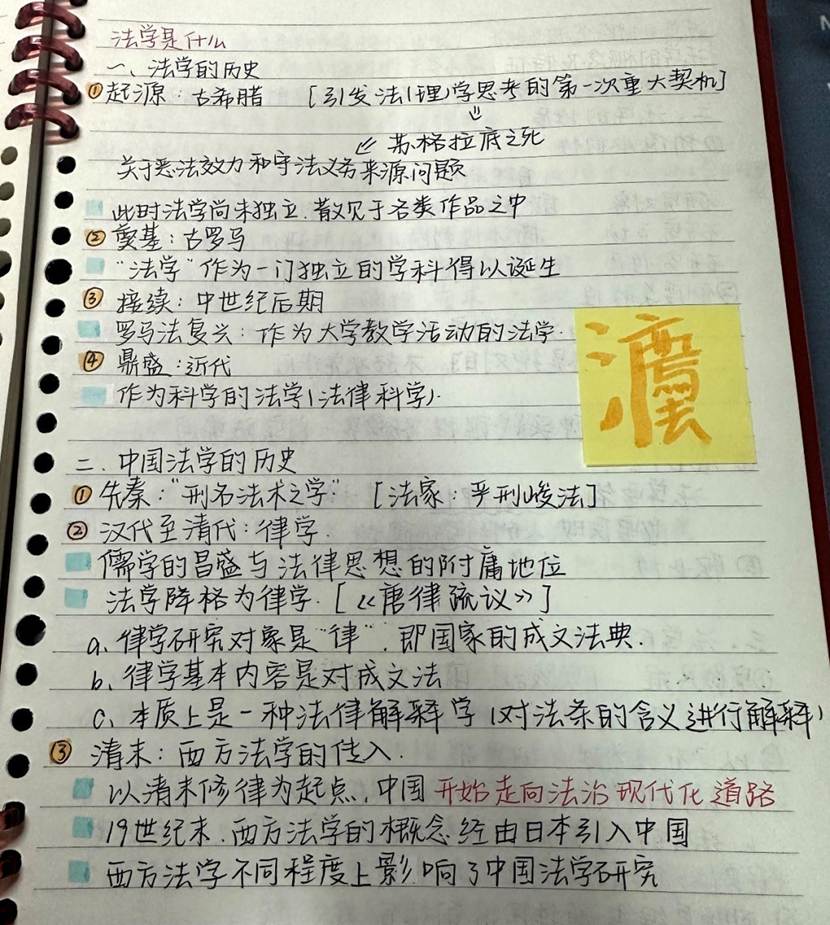 法学是什么
一、法学的历史
①起源：古希腊 [引发法(理)学思考的第一次重大契机]
⇓
⇙ 苏格拉底之死
关于恶法效力和守法义务来源问题
此时法学尚未独立.散见于各类作品之中
② 奠基：古罗马
“法学”作为一门独立的学科得以诞生
③ 接续：中世纪后期
罗马法复兴：作为大学教学活动的法学.
④ 鼎盛：近代
作为科学的法学(法律科学).
灋
二.中国法学的历史
① 先秦：“刑名法术之学” [法家：严刑峻法]
② 汉代至清代：律学.
儒学的昌盛与法律思想的附属地位
法学降格为律学.[《唐律疏议》]
a、律学研究对象是“律”.即国家的成文法典.
b、律学基本内容是对成文法
c、本质上是一种法律解释学(对法条的含义进行解释)
③ 清末：西方法学的传入.
以清末修律为起点.中国开始走向法治现代化道路
19世纪末.西方法学的概念经由日本引入中国
西方法学不同程度上影响了中国法学研究